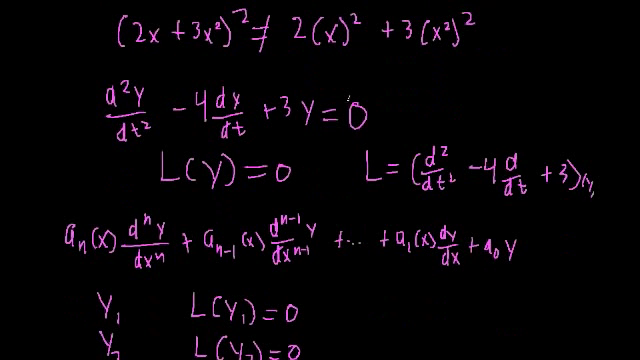 (2x + 3x²)² ≠ 2(x)² + 3(x²)²
d²y/dt² - 4 dy/dt + 3y = 0
L(y) = 0 L = (d²/dt² - 4 d/dt + 3)(y)
aₙ(x) dⁿy/dxⁿ + aₙ₋₁(x) dⁿ⁻¹y/dxⁿ⁻¹ + ... + a₁(x) dy/dx + a₀ y
y₁ L(y₁) = 0
y₂ L(y₂) = 0